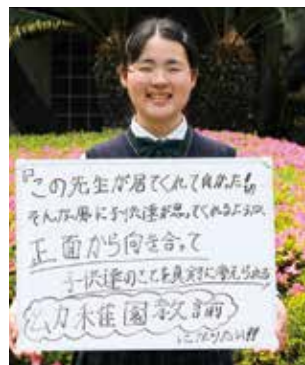 『この先生が居てくれて良かった!』
そんな風に子供達が思ってくれるような、
正面から向き合って
子供達のことを真剣に考えられる
幼稚園教諭
になりたい!!